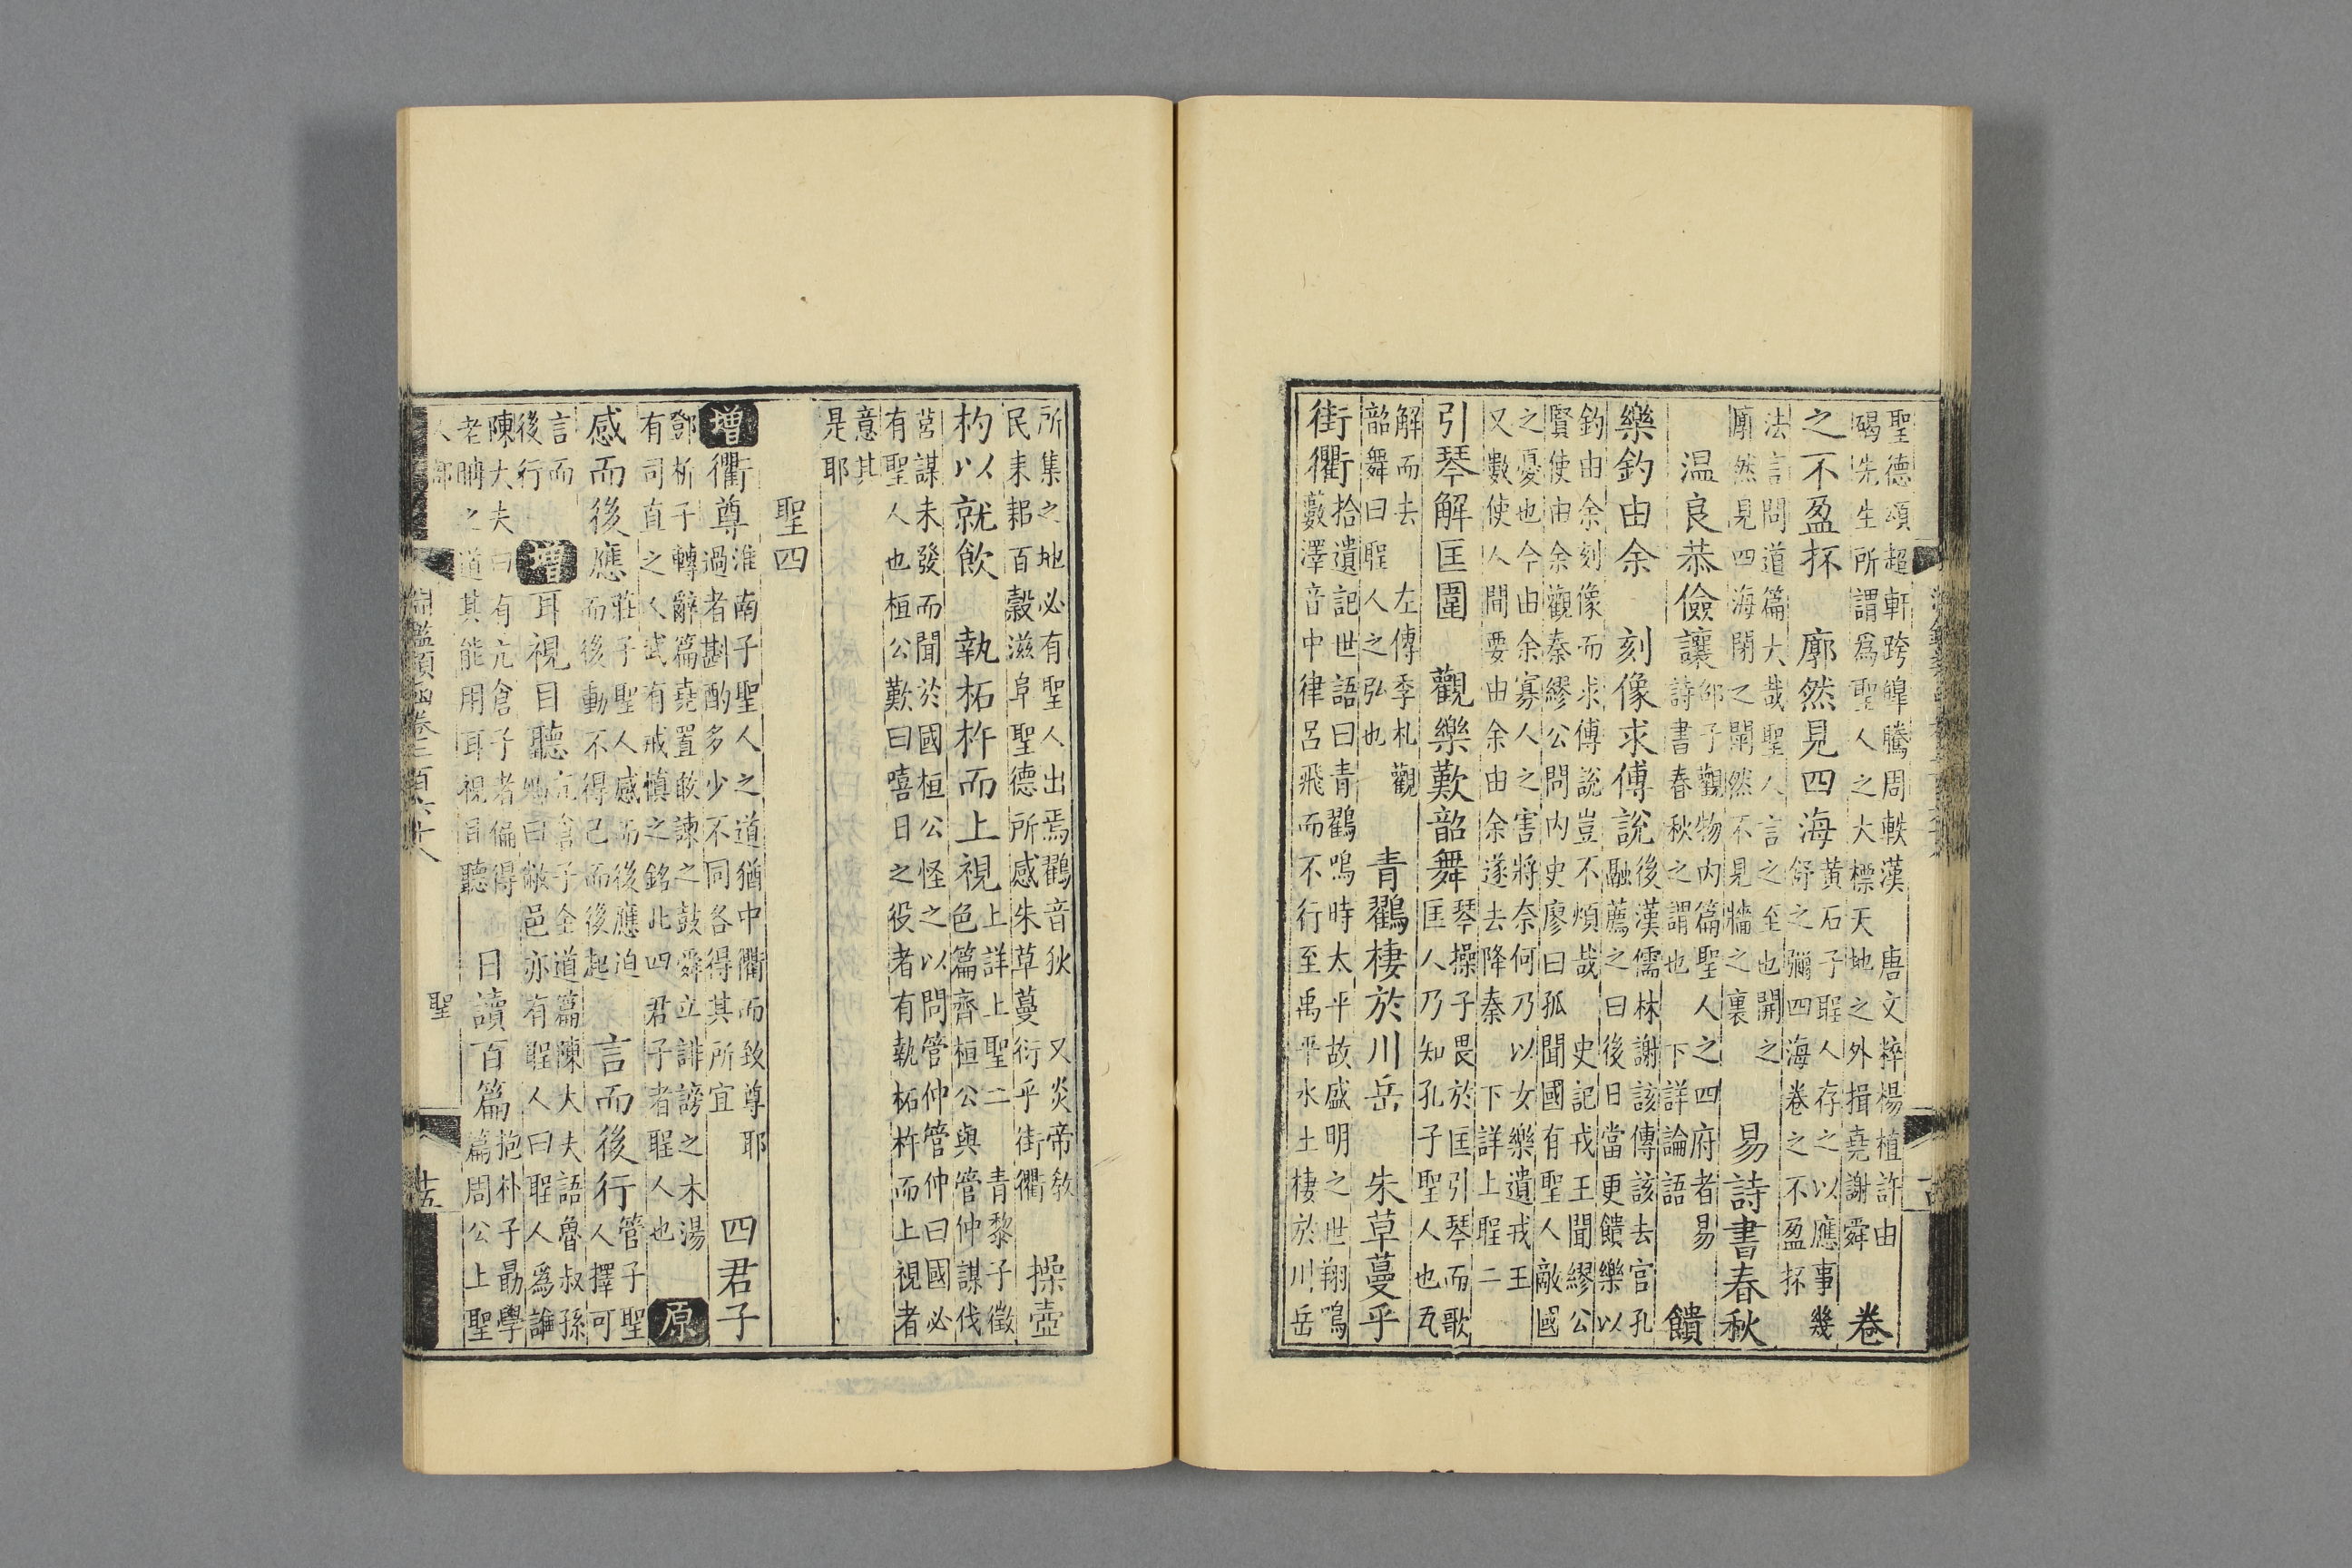 聖德頌超軒跨皡騰周軼漢　唐文粹楊植許由
碣先生所謂爲聖人之大標天地之外揖堯謝舜　卷
之不盈抔　黃石子聖人存之以應事幾
舒之彌四海卷之不盈抔　廓然見四海
法言問道篇大哉聖人言之至也開之
廓然見四海閉之闃然不見牆之裏　易詩書春秋
溫良恭儉讓　邵子觀物內篇聖人之四府者易
詩書春秋之謂也　下詳論語　饋
樂釣由余　刻像求傅說　後漢儒林謝該傳該去官孔
融薦之曰後日當更饋樂以
釣由余刻像而求傅說豈不煩哉　史記戎王聞繆公
賢使由余觀秦繆公問內史廖曰孤聞國有聖人敵國
之憂也今由余寡人之害將奈何乃以女樂遺戎王
又數使人間要由余由余遂去降秦　下詳上聖二
引琴解匡圍　觀樂歎韶舞　琴操子畏於匡引琴而歌
匡人乃知孔子聖人也瓦
解而去　左傳季札觀
韶舞曰聖人之弘也　青鸐棲於川岳　朱草蔓乎
街衢　拾遺記世語曰青鸐鳴時太平故盛明之世翔鳴
藪澤音中律呂飛而不行至禹平水土棲於川岳
所集之地必有聖人出焉鸐音狄　又炎帝敎
民耒耜百穀滋阜聖德所感朱草蔓衍乎街衢　操壺
杓以就飲　執柘杵而上視　上詳上聖二　青黎子徵
色篇齊桓公與管仲謀伐
莒謀未發而聞於國桓公怪之以問管仲管仲曰國必
有聖人也桓公歎曰嘻日之役者有執柘杵而上視者
意其
是耶
聖四
增衢尊　淮南子聖人之道猶中衢而致尊耶
過者斟酌多少不同各得其所宜　四君子
鄧析子轉辭篇堯置敢諫之鼓舜立誹謗之木湯
有司直之人武有戒愼之銘此四君子者聖人也　原
感而後應　莊子聖人感而後應迫
而後動不得已而後起　言而後行　管子聖
人擇可
言而
後行　增耳視目聽　亢倉子全道篇陳大夫語魯叔孫
卿曰敝邑亦有聖人曰聖人爲誰
陳大夫曰有亢倉子者偏得
老聃之道其能用耳視目聽　日讀百篇　抱朴子勗學
篇周公上聖
淵鑑類函卷二百六十八　聖　十五